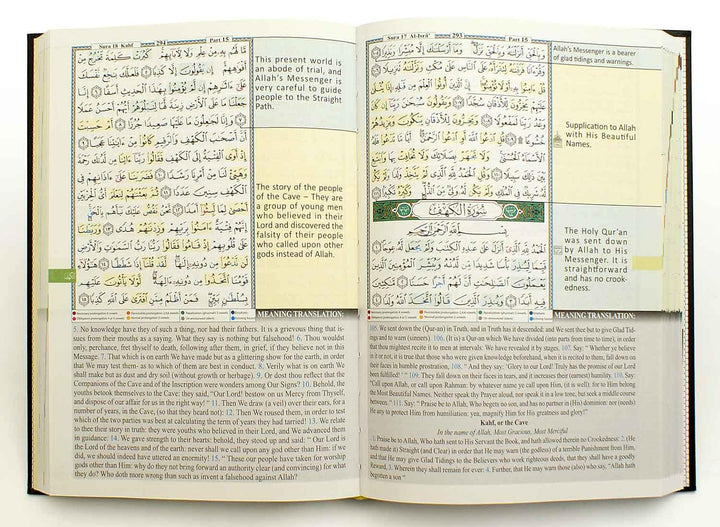 Sura 17 Al-Isrâ' 293 Part 15
وَبِالْحَقِّ أَنزَلْنَاهُ وَبِالْحَقِّ نَزَلَ وَمَا أَرْسَلْنَاكَ إِلَّا مُبَشِّرًا وَنَذِيرًا ١٠٥
وَقُرْآنًا فَرَقْنَاهُ لِتَقْرَأَهُ عَلَى النَّاسِ عَلَى مُكْثٍ وَنَزَّلْنَاهُ تَنزِيلًا ١٠٦
قُلْ آمِنُوا بِهِ أَوْ لَا تُؤْمِنُوا إِنَّ الَّذِينَ أُوتُوا الْعِلْمَ مِن قَبْلِهِ إِذَا يُتْلَى
عَلَيْهِمْ يَخِرُّونَ لِلْأَذْقَانِ سُجَّدًا ١٠٧ وَيَقُولُونَ سُبْحَانَ رَبِّنَا إِن كَانَ
وَعْدُ رَبِّنَا لَمَفْعُولًا ١٠٨ وَيَخِرُّونَ لِلْأَذْقَانِ يَبْكُونَ وَيَزِيدُهُمْ
خُشُوعًا ١٠٩ قُلِ ادْعُوا اللَّهَ أَوِ ادْعُوا الرَّحْمَنَ أَيًّا مَّا تَدْعُوا فَلَهُ
الْأَسْمَاءُ الْحُسْنَى وَلَا تَجْهَرْ بِصَلَاتِكَ وَلَا تُخَافِتْ بِهَا وَابْتَغِ
بَيْنَ ذَلِكَ سَبِيلًا ١١٠ وَقُلِ الْحَمْدُ لِلَّهِ الَّذِي لَمْ يَتَّخِذْ وَلَدًا وَلَمْ يَكُن
لَّهُ شَرِيكٌ فِي الْمُلْكِ وَلَمْ يَكُن لَّهُ وَلِيٌّ مِّنَ الذُّلِّ وَكَبِّرْهُ تَكْبِيرًا ١١١
سُورَةُ الْكَهْفِ
بِسْمِ اللَّهِ الرَّحْمَنِ الرَّحِيمِ
الْحَمْدُ لِلَّهِ الَّذِي أَنزَلَ عَلَى عَبْدِهِ الْكِتَابَ وَلَمْ يَجْعَل لَّهُ عِوَجًا ١
قَيِّمًا لِّيُنذِرَ بَأْسًا شَدِيدًا مِّن لَّدُنْهُ وَيُبَشِّرَ الْمُؤْمِنِينَ الَّذِينَ
يَعْمَلُونَ الصَّالِحَاتِ أَنَّ لَهُمْ أَجْرًا حَسَنًا ٢ مَّاكِثِينَ
فِيهِ أَبَدًا ٣ وَيُنذِرَ الَّذِينَ قَالُوا اتَّخَذَ اللَّهُ وَلَدًا ٤
Allah's Messenger is a bearer
of glad tidings and warnings.
Supplication to Allah
with His Beautiful
Names.
The Holy Qur'an
was sent down
by Allah to His
Messenger. It is
straightforward
and has no crook-
edness.
MEANING TRANSLATION:
105. We sent down the (Qur-an) in Truth, and in Truth has it descended: and We sent thee but to give Glad Tid-
ings and to warn (sinners). 106. (It is) a Qur-an which We have divided (into parts from time to time), in order
that thou mightest recite it to men at intervals: We have revealed it by stages. 107. Say: " Whether ye believe
in it or not, it is true that those who were given knowledge beforehand, when it is recited to them, fall down on
their faces in humble prostration, 108. " And they say: 'Glory to our Lord! Truly has the promise of our Lord
been fulfilled!' " 109. They fall down on their faces in tears, and it increases their (earnest) humility. 110. Say:
"Call upon Allah, or call upon Rahman: by whatever name ye call upon Him, (it is well): for to Him belong
the Most Beautiful Names. Neither speak thy Prayer aloud, nor speak it in a low tone, but seek a middle course
between." 111. Say: " Praise be to Allah, Who begets no son, and has no partner in (His) dominion: nor (needs)
He any to protect Him from humiliation: yea, magnify Him for His greatness and glory!"
Kahf, or the Cave
In the name of Allah, Most Gracious, Most Merciful
1. Praise be to Allah, Who hath sent to His Servant the Book, and hath allowed therein no Crookedness: 2. (He
hath made it) Straight (and Clear) in order that He may warn (the godless) of a terrible Punishment from Him,
and that He may give Glad Tidings to the Believers who work righteous deeds, that they shall have a goodly
Reward, 3. Wherein they shall remain for ever: 4. Further, that He may warn those (also) who say, "Allah hath
begotten a son"
Sura 18 Kahf 294 Part 15
مَّا لَهُم بِهِ مِنْ عِلْمٍ وَلَا لِآبَائِهِمْ كَبُرَتْ كَلِمَةً تَخْرُجُ مِنْ
أَفْوَاهِهِمْ إِن يَقُولُونَ إِلَّا كَذِبًا ٥ فَلَعَلَّكَ بَاخِعٌ نَّفْسَكَ
عَلَى آثَارِهِمْ إِن لَّمْ يُؤْمِنُوا بِهَذَا الْحَدِيثِ أَسَفًا ٦ إِنَّا
جَعَلْنَا مَا عَلَى الْأَرْضِ زِينَةً لَّهَا لِنَبْلُوَهُمْ أَيُّهُمْ أَحْسَنُ عَمَلًا
٧ وَإِنَّا لَجَاعِلُونَ مَا عَلَيْهَا صَعِيدًا جُرُزًا ٨ أَمْ حَسِبْتَ
أَنَّ أَصْحَابَ الْكَهْفِ وَالرَّقِيمِ كَانُوا مِنْ آيَاتِنَا عَجَبًا ٩
إِذْ أَوَى الْفِتْيَةُ إِلَى الْكَهْفِ فَقَالُوا رَبَّنَا آتِنَا مِن لَّدُنكَ رَحْمَةً
وَهَيِّئْ لَنَا مِنْ أَمْرِنَا رَشَدًا ١٠ فَضَرَبْنَا عَلَى آذَانِهِمْ فِي
الْكَهْفِ سِنِينَ عَدَدًا ١١ ثُمَّ بَعَثْنَاهُمْ لِنَعْلَمَ أَيُّ الْحِزْبَيْنِ
أَحْصَى لِمَا لَبِثُوا أَمَدًا ١٢ نَّحْنُ نَقُصُّ عَلَيْكَ نَبَأَهُم بِالْحَقِّ
إِنَّهُمْ فِتْيَةٌ آمَنُوا بِرَبِّهِمْ وَزِدْنَاهُمْ هُدًى ١٣ وَرَبَطْنَا
عَلَى قُلُوبِهِمْ إِذْ قَامُوا فَقَالُوا رَبُّنَا رَبُّ السَّمَاوَاتِ وَالْأَرْضِ
لَن نَّدْعُوَ مِن دُونِهِ إِلَهًا لَّقَدْ قُلْنَا إِذًا شَطَطًا ١٤ هَؤُلَاءِ
قَوْمُنَا اتَّخَذُوا مِن دُونِهِ آلِهَةً لَّوْلَا يَأْتُونَ عَلَيْهِم
بِسُلْطَانٍ بَيِّنٍ فَمَنْ أَظْلَمُ مِمَّنِ افْتَرَى عَلَى اللَّهِ كَذِبًا ١٥
This present world is
an abode of trial, and
Allah's Messenger is
very careful to guide
people to the Straight
Path.
The story of the people
of the Cave – They are
a group of young men
who believed in their
Lord and discovered the
falsity of their people
who called upon other
gods instead of Allah.
MEANING TRANSLATION:
5. No knowledge have they of such a thing, nor had their fathers. It is a grievous thing that is-
sues from their mouths as a saying. What they say is nothing but falsehood! 6. Thou wouldst
only, perchance, fret thyself to death, following after them, in grief, if they believe not in this
Message. 7. That which is on earth We have made but as a glittering show for the earth, in order
that We may test them- as to which of them are best in conduct. 8. Verily what is on earth We
shall make but as dust and dry soil (without growth or herbage). 9. Or dost thou reflect that the
Companions of the Cave and of the Inscription were wonders among Our Signs? 10. Behold, the
youths betook themselves to the Cave: they said, "Our Lord! bestow on us Mercy from Thyself,
and dispose of our affair for us in the right way!" 11. Then We draw (a veil) over their ears, for a
number of years, in the Cave, (so that they heard not): 12. Then We roused them, in order to test
which of the two parties was best at calculating the term of years they had tarried! 13. We relate
to thee their story in truth: they were youths who believed in their Lord, and We advanced them
in guidance: 14. We gave strength to their hearts: behold, they stood up and said: " Our Lord is
the Lord of the heavens and of the earth: never shall we call upon any god other than Him: if we
did, we should indeed have uttered an enormity! 15. " These our people have taken for worship
gods other than Him: why do they not bring forward an authority clear (and convincing) for what
they do? Who doth more wrong than such as invent a falsehood against Allah?